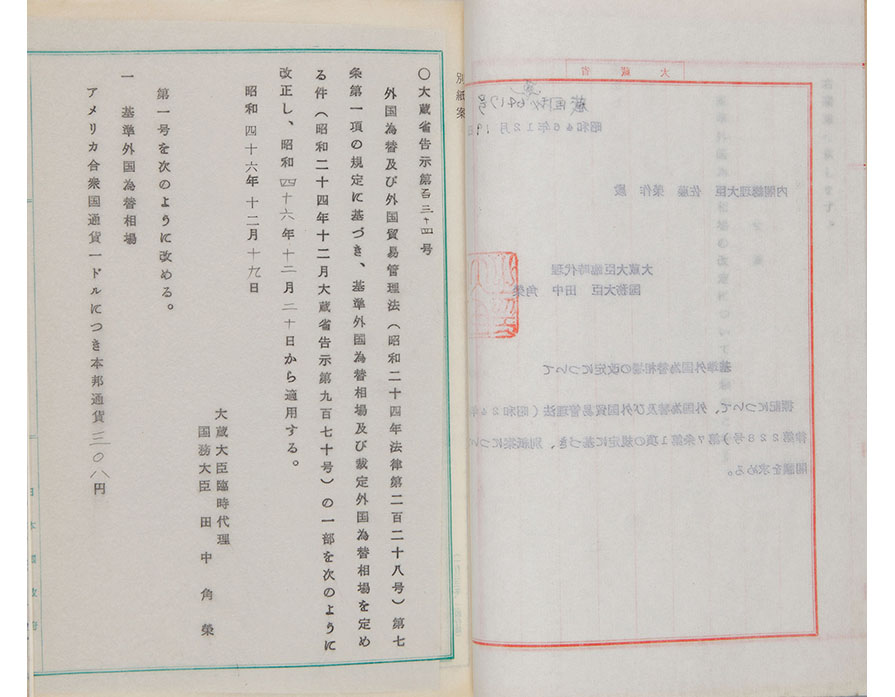 大蔵省
昭和46年12月19日
内閣総理大臣 佐藤 榮作 殿
大蔵大臣臨時代理
国務大臣 田中 角榮
基準外国為替相場の改定について
標記について、外国為替及び外国貿易管理法(昭和24年
律第228号)第7条第1項の規定に基づき、別紙案につい
閣議を求める。
別紙案
○大蔵省告示第百三十四号
外国為替及び外国貿易管理法(昭和二十四年法律第二百二十八号)第七
条第一項の規定に基づき、基準外国為替相場及び裁定外国為替相場を定め
る件(昭和二十四年十二月大蔵省告示第九百七十号)の一部を次のように
改正し、昭和四十六年十二月二十日から適用する。
昭和四十六年十二月十九日
大蔵大臣臨時代理
国務大臣 田中角榮
第一号を次のように改める。
一 基準外国為替相場
アメリカ合衆国通貨一ドルにつき本邦通貨三〇八円
日本国政府